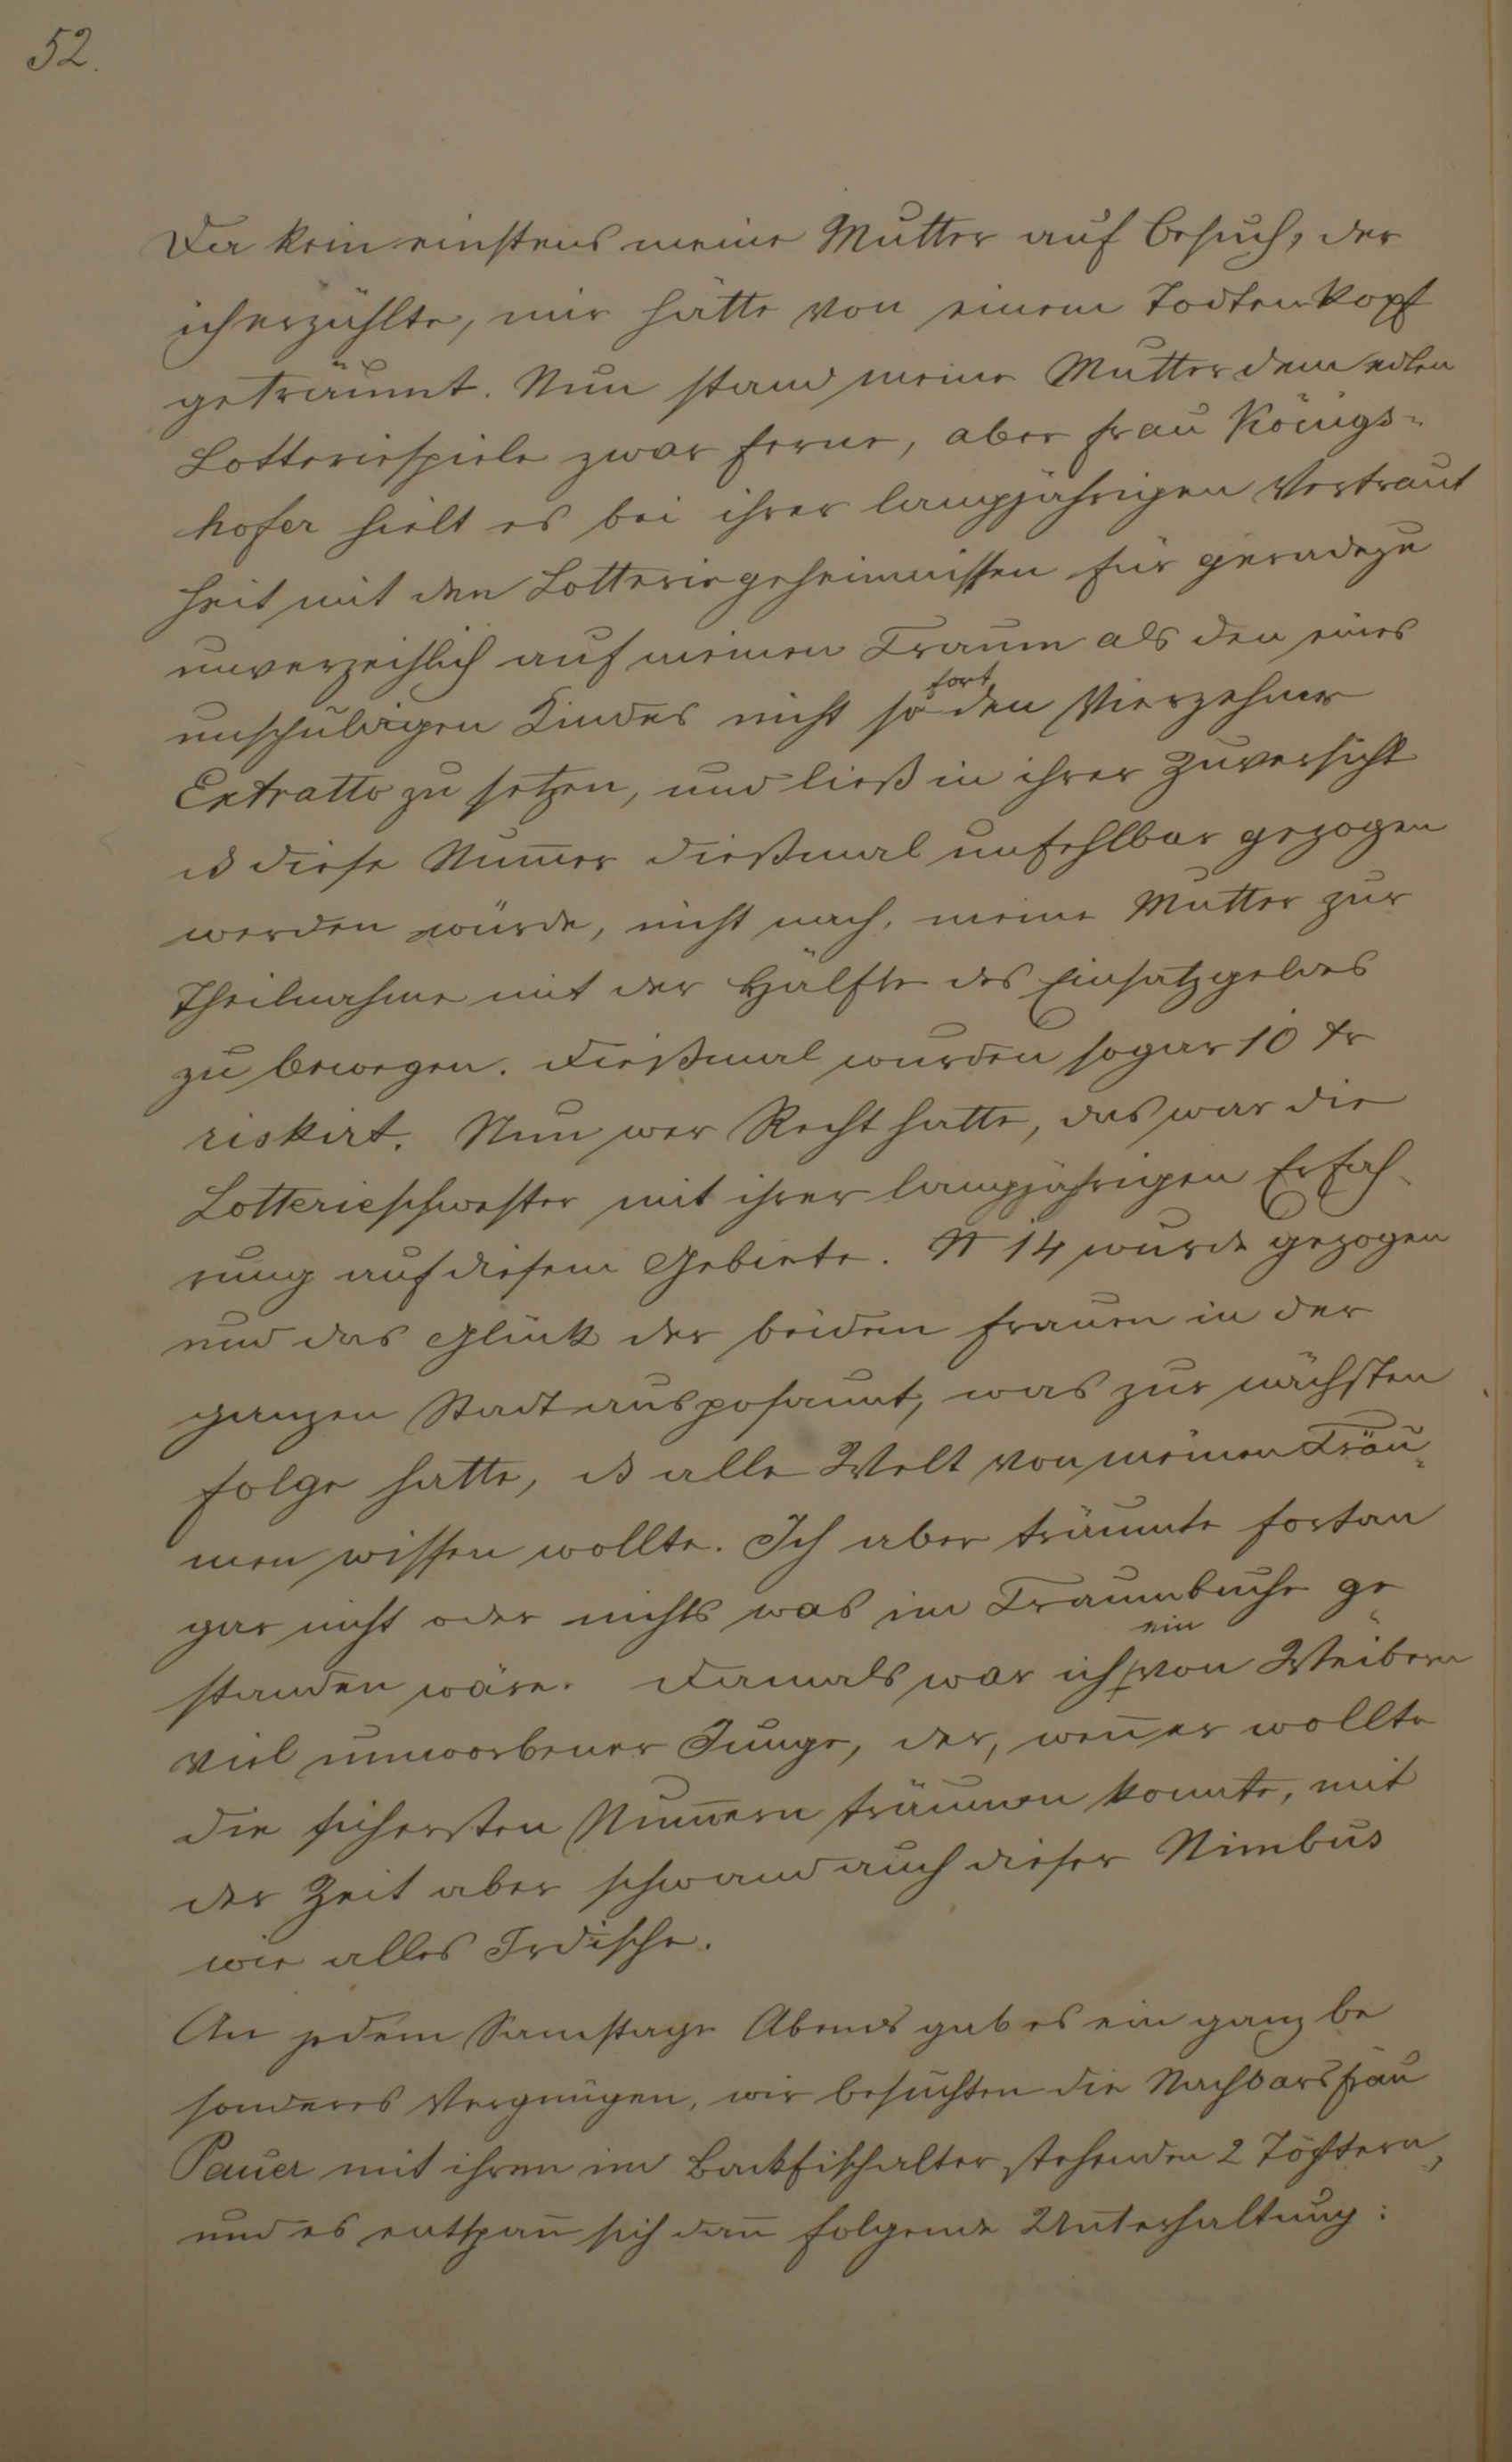 52.
Da kam einstens meine Mutter auf Besuch, der
ich erzählte, mir hätte von einem Todtenkopf
geträumt. Nun stand meine Mutter dem edlen
Lotteriespiele zwar ferne, aber Frau Königs=
hofer hielt es bei ihrer langjährigen Vertraut
heit mit den Lotteriegeheimnissen für geradezu
unverzeihlich auf meinen Traum als den eines
unschuldigen Kindes nicht sofort den Vierzehner
Extratto zu setzen, und ließ in ihrer Zuversicht
ß diese Num̅er dießmal unfehlbar gezogen
werden würde, nicht nach, meine Mutter zur
Theilnahme mit der Hälfte des Einsatzgeldes
zu bewegen. Dießmal wurden sogar 10 kr
riskirt. Nun wer Recht hatte, das war die
Lotterieschwester mit ihrer langjährigen Erfah-
rung auf diesem Gebiete. N 14 wurde gezogen
und das Glück der beiden Frauen in der
ganzen Stadt ausposaunt, was zur nächsten
Folge hatte, ß alle Welt von meinen Träu=
men wissen wollte. Ich aber träumte fortan
gar nicht oder nichts was im Traumbuche ge
standen wäre. Damals war ich ein von Weibern
viel umworbener Junge, der, wen̅ er wollte
die sichersten Num̅ern träumen konnte, mit
der Zeit aber schwand auch dieser Nimbus
wie alles Irdische.
An jedem Samstage Abends gab es ein ganz be
sonderes Vergnügen, wir besuchten die Nachbarsfrau
Pauer mit ihren im Backfischalter stehenden 2 Töchtern,
und es entspan̅ sich dan̅ folgende Unterhaltung: